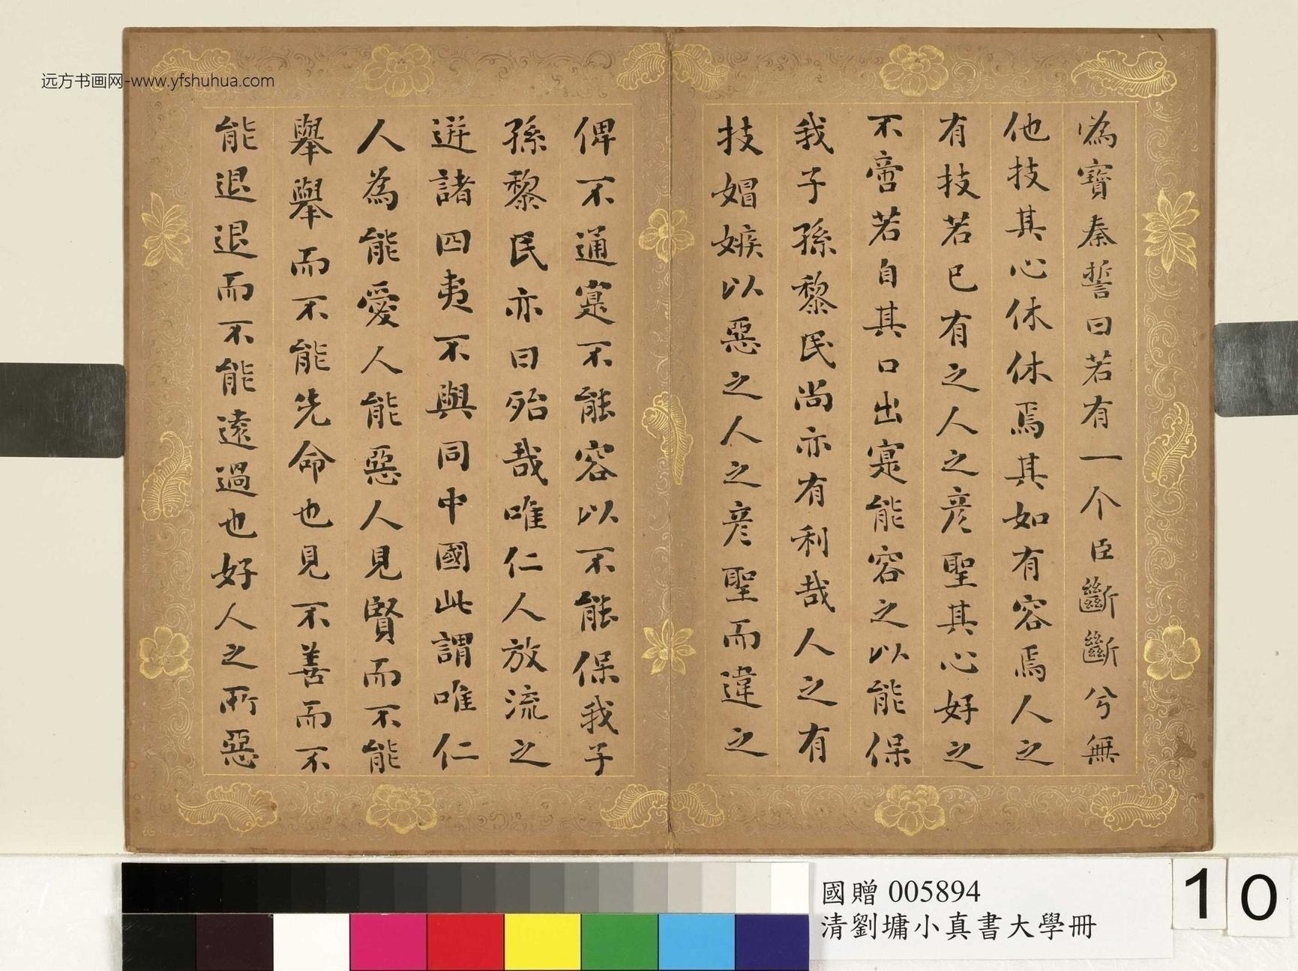 远方书画网-www.yfshuhua.com
為寶秦誓曰若有一个臣斷斷兮無
他技其心休休焉其如有容焉人之
有技若己有之人之彥聖其心好之
不啻若自其口出寔能容之以能保
我子孫黎民尚亦有利哉人之有
技媢嫉以惡之人之彥聖而違之
俾不通寔不能容以不能保我子
孫黎民亦曰殆哉唯仁人放流之
迸諸四夷不與同中國此謂唯仁
人為能愛人能惡人見賢而不能
舉舉而不能先命也見不善而不
能退退而不能遠過也好人之所惡
國贈 005894
清劉墉小真書大學冊
10